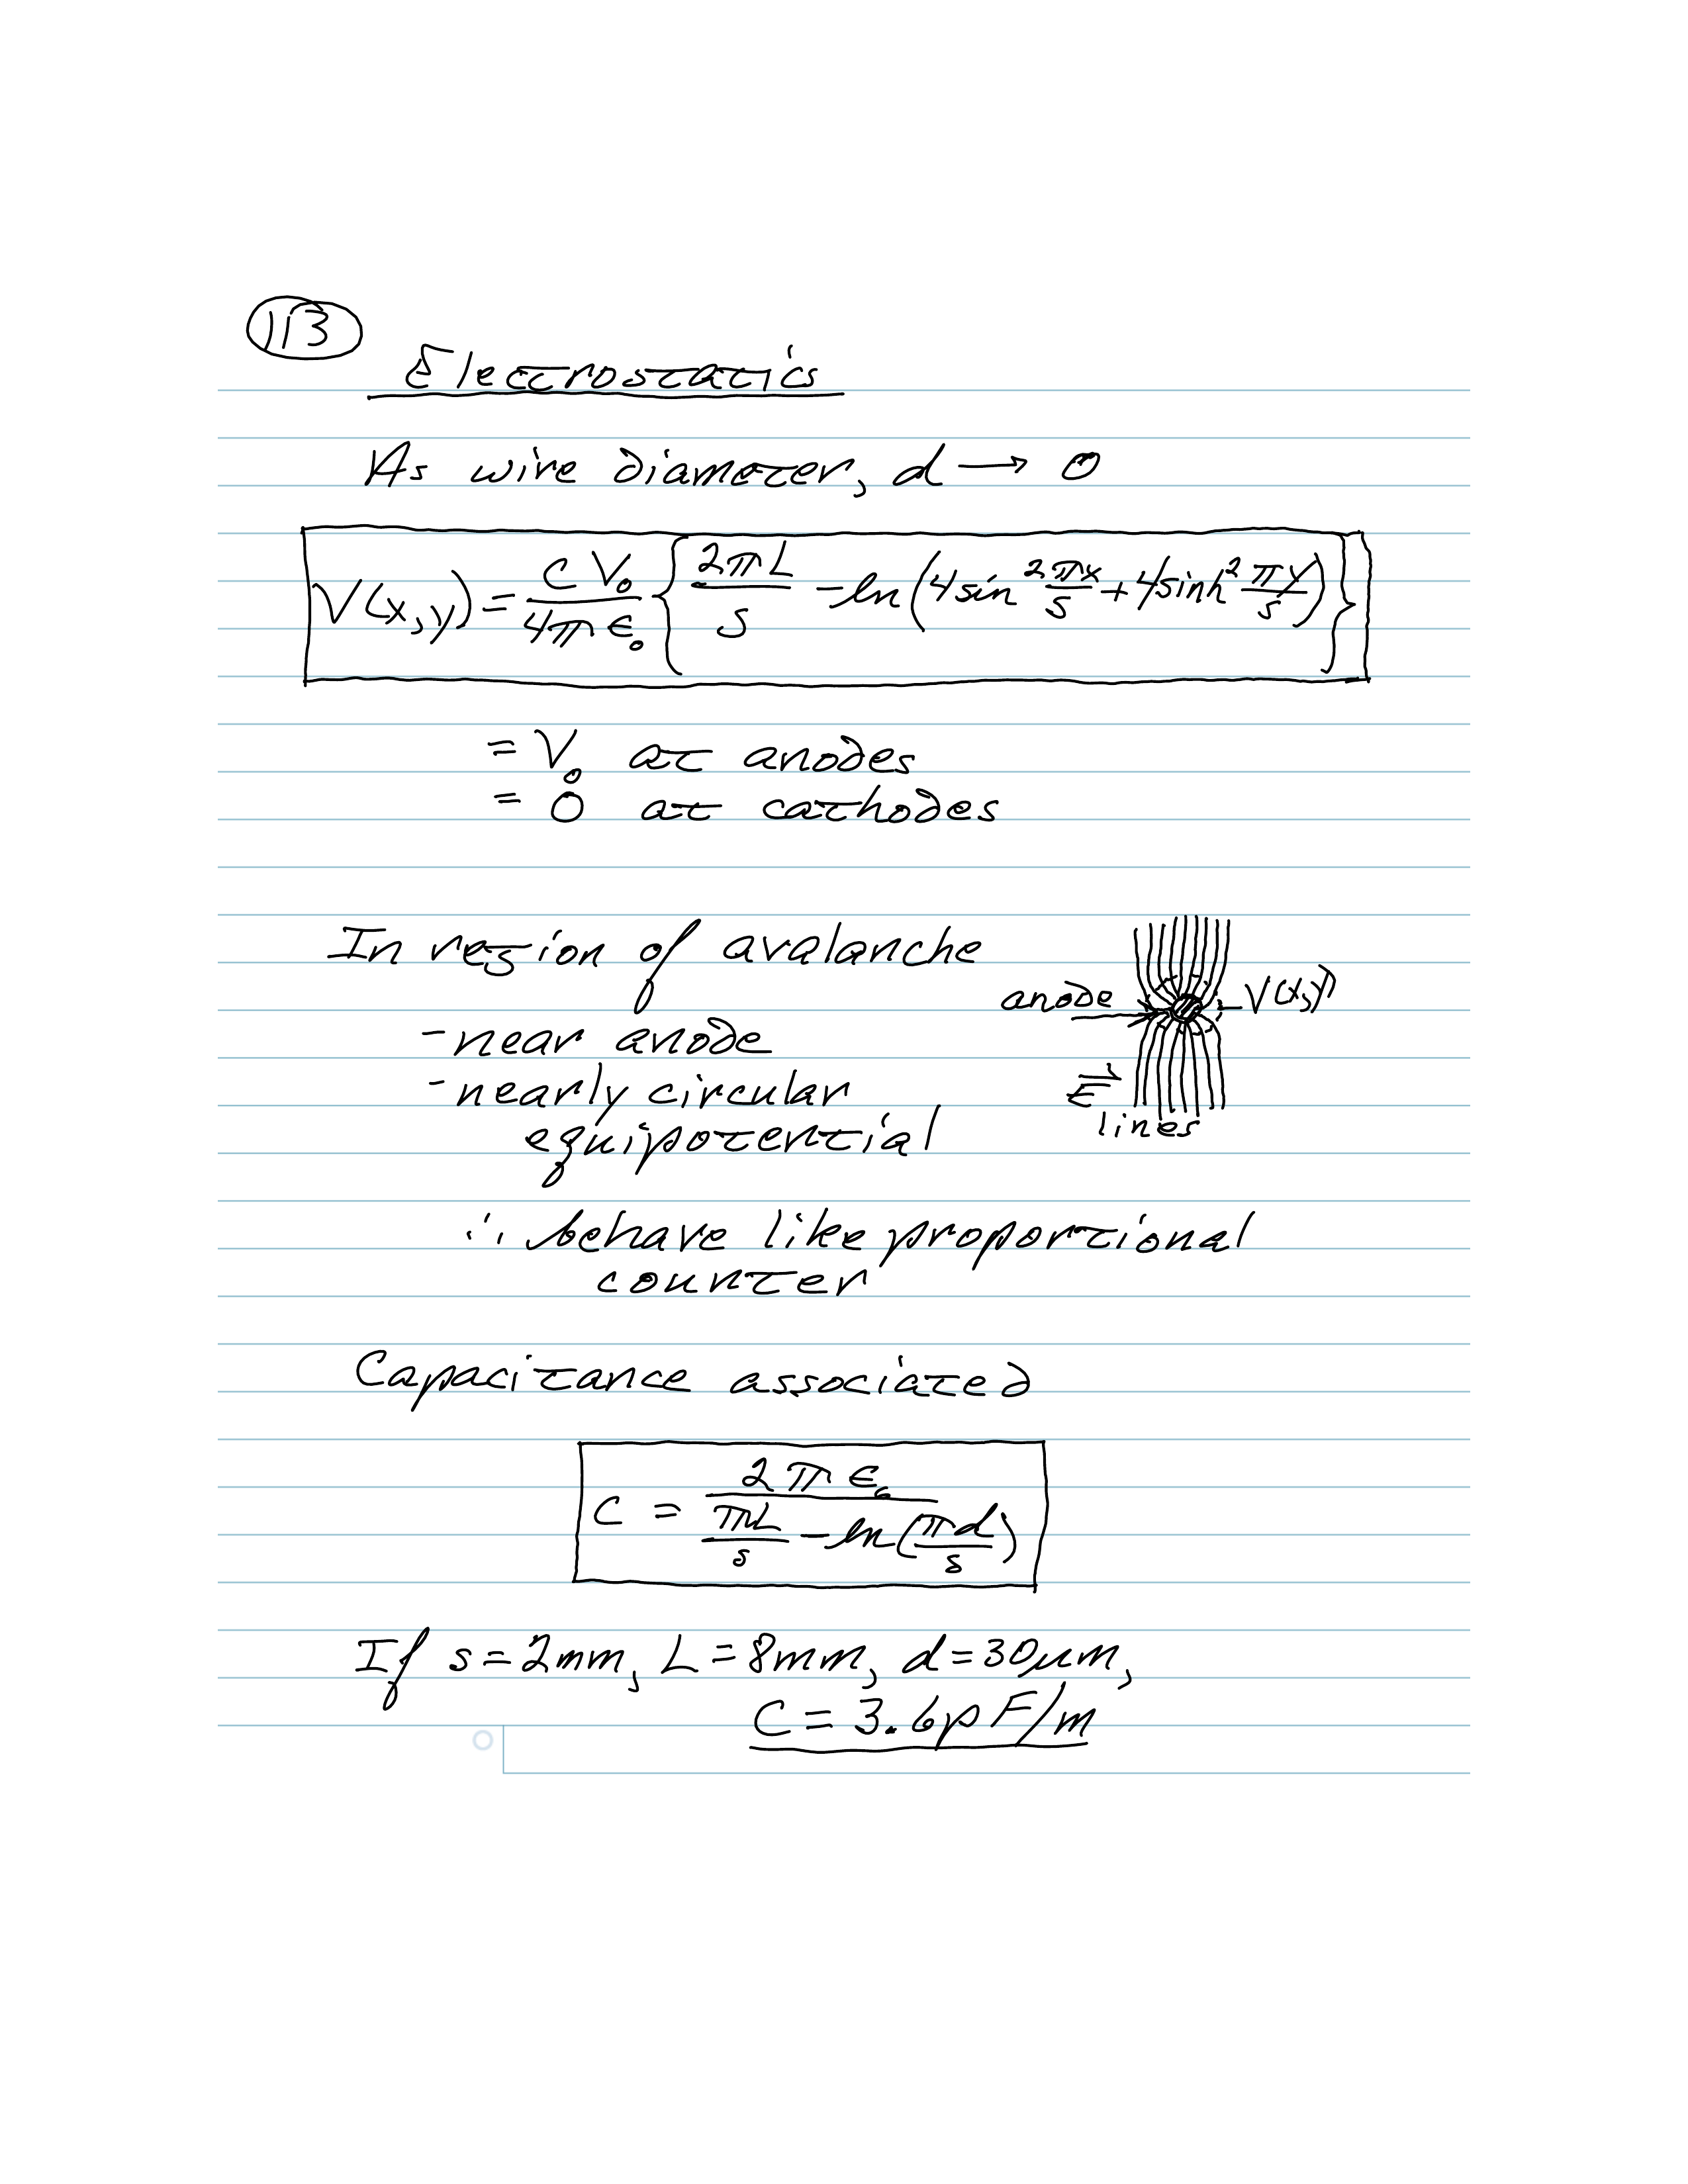 113
Electrostatics
As wire diameter, d → 0
V(x,y) = CV₀/4πε₀ {2πL/s - ln(4sin² πx/s + 4sinh² πy/s)}
= V₀ at anodes
= 0 at cathodes
In region of avalanche
anode
V(x,y)
- near anode
- nearly circular
equipotential
E⃗
lines
∴ behave like proportional
counter
Capacitance associated
C = 2πε₀ / (πL/s - ln(πd/s))
If s = 2mm, L = 8mm, d = 30μm,
C = 3.6pF/m